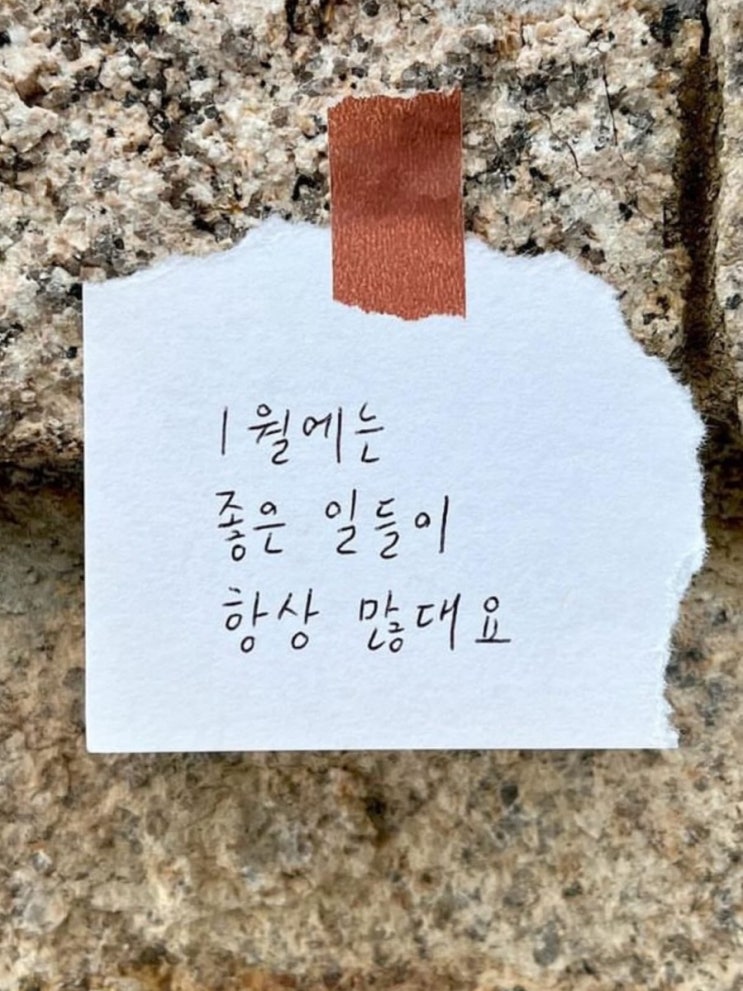 1월에는
좋은 일들이
항상 많대요